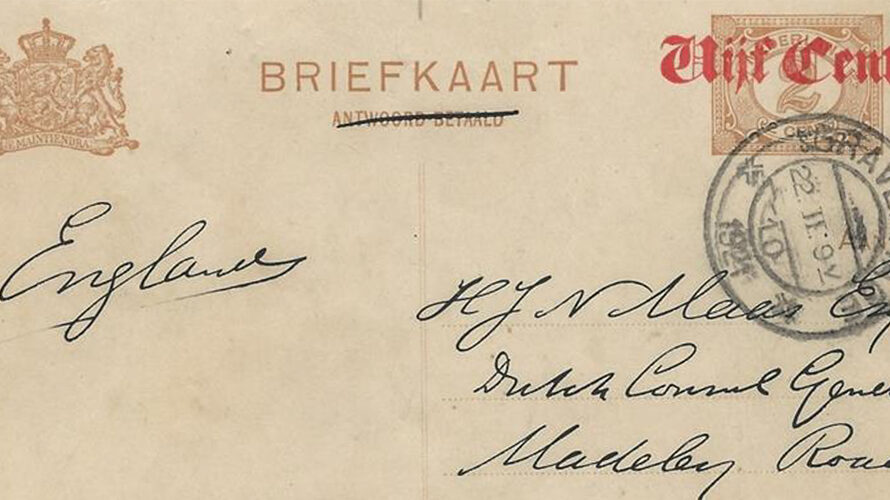 BRIEFKAART
ANTWOORD BETAALD
Vijf Cent
2
CENT
JE MAINTIENDRAI
'SGRAVE
22.II.9
1921
10
England
H J N Maas Esq
Dutch Consul Gener
Madeley Road